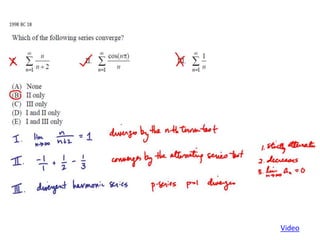 1998 BC 18
Which of the following series converge?
✗ I. ∞ ∑ n=1 n/(n+2) ✓ II. ∞ ∑ n=1 cos(nπ)/n ✗ III. ∞ ∑ n=1 1/n
(A) None
(B) II only
(C) III only
(D) I and II only
(E) I and III only
I. lim n→∞ n/(n+2) = 1 diverges by the nth term test
II. -1/1 + 1/2 - 1/3 converges by the alternating series test
1. strictly alternating
2. decreases
3. lim n→∞ an = 0
III. divergent harmonic series p-series p=1 diverges
Video